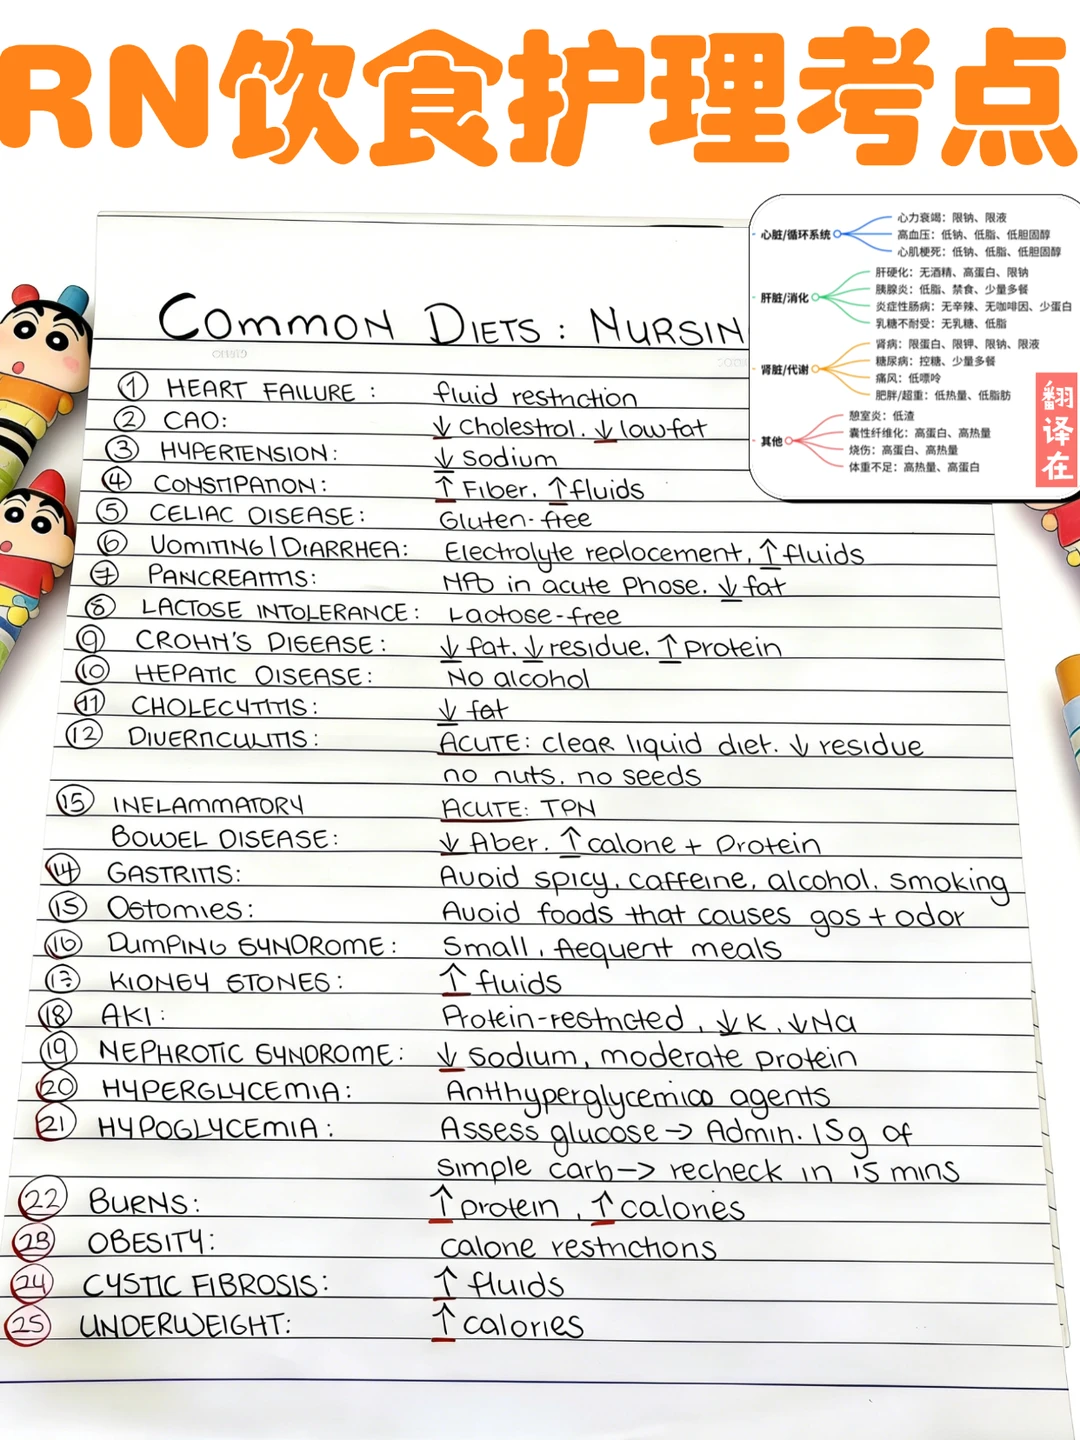 RN饮食护理考点
COMMON DIETS: NURSIN
心脏/循环系统
心力衰竭：限钠、限液
高血压：低钠、低脂、低胆固醇
心肌梗死：低钠、低脂、低胆固醇
肝脏/消化
肝硬化：无酒精、高蛋白、限钠
胰腺炎：低脂、禁食、少量多餐
炎症性肠病：无辛辣、无咖啡因、少蛋白
乳糖不耐受：无乳糖、低脂
肾脏/代谢
肾病：限蛋白、限钾、限钠、限液
糖尿病：控糖、少量多餐
痛风：低嘌呤
肥胖/超重：低热量、低脂肪
其他
憩室炎：低渣
囊性纤维化：高蛋白、高热量
烧伤：高蛋白、高热量
体重不足：高热量、高蛋白
翻译在
① HEART FAILURE : fluid restriction
② CAO: ↓ cholestrol. ↓ lowfat
③ HYPERTENSION: ↓ sodium
④ CONSTIPATION: ↑ Fiber. ↑ fluids
⑤ CELIAC DISEASE: Gluten-free
⑥ VOMITING|DIARRHEA: Electrolyte replocement, ↑ fluids
⑦ PANCREATITIS: NPO in acute Phose. ↓ fat
⑧ LACTOSE INTOLERANCE: Lactose-free
⑨ CROHN'S DISEASE: ↓ fat. ↓ residue. ↑ protein
⑩ HEPATIC DISEASE: No alcohol
⑪ CHOLECYTITIS: ↓ fat
⑫ DIVERTICULITIS: ACUTE: clear liquid diet. ↓ residue
no nuts. no seeds
⑮ INFLAMMATORY ACUTE: TPN
BOWEL DISEASE: ↓ fiber. ↑ calorie + Protein
⑭ GASTRITIS: Avoid spicy, caffeine, alcohol. smoking
⑮ Ostomies: Avoid foods that causes gas + odor
⑯ DUMPING SYNDROME: Small, frequent meals
⑰ KIDNEY STONES: ↑ fluids
⑱ AKI: Protein-restricted, ↓ K, ↓ Na
⑲ NEPHROTIC SYNDROME: ↓ sodium, moderate protein
⑳ HYPERGLYCEMIA: Antihyperglycemic agents
㉑ HYPOGLYCEMIA: Assess glucose → Admin. 15g of
simple carb → recheck in 15 mins
㉒ BURNS: ↑ protein, ↑ calories
㉓ OBESITY: calorie restrictions
㉔ CYSTIC FIBROSIS: ↑ fluids
㉕ UNDERWEIGHT: ↑ calories